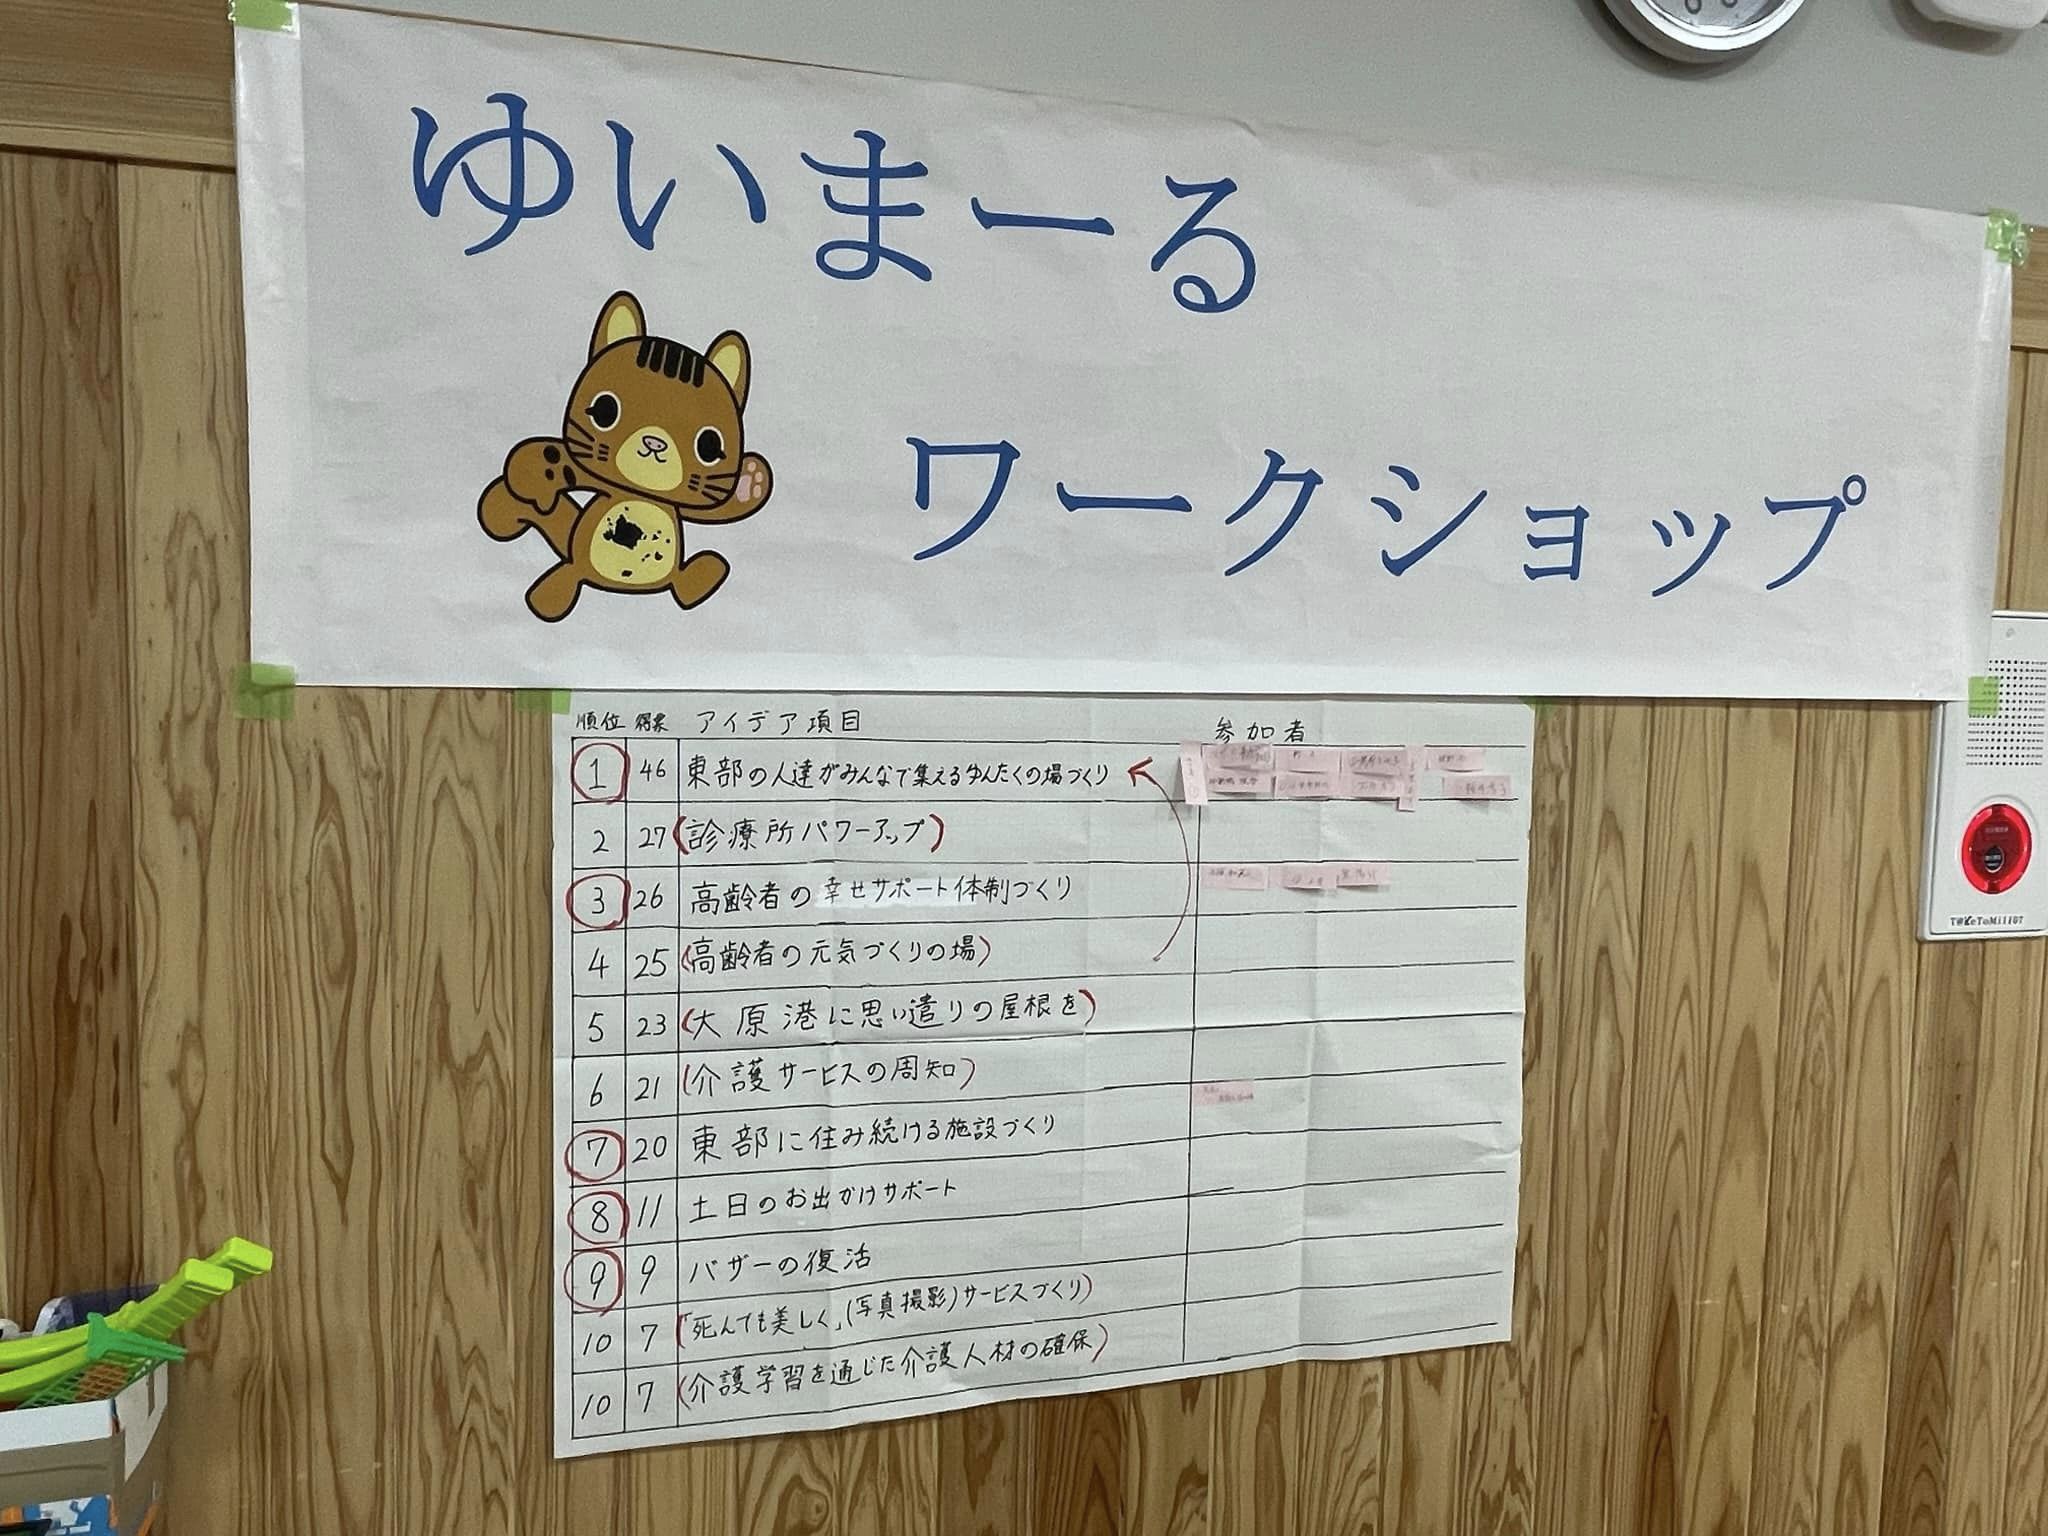 ゆいまーる
ワークショップ
順位 得票 アイデア項目 参加者
1 46 東部の人達がみんなで集えるゆんたくの場づくり
2 27 (診療所パワーアップ)
3 26 高齢者の幸せサポート体制づくり
4 25 (高齢者の元気づくりの場)
5 23 (大原港に思い遣りの屋根を)
6 21 (介護サービスの周知)
7 20 東部に住み続ける施設づくり
8 11 土日のお出かけサポート
9 9 バザーの復活
10 7 (「死んでも美しく」(写真撮影)サービスづくり)
10 7 (介護学習を通じた介護人材の確保)